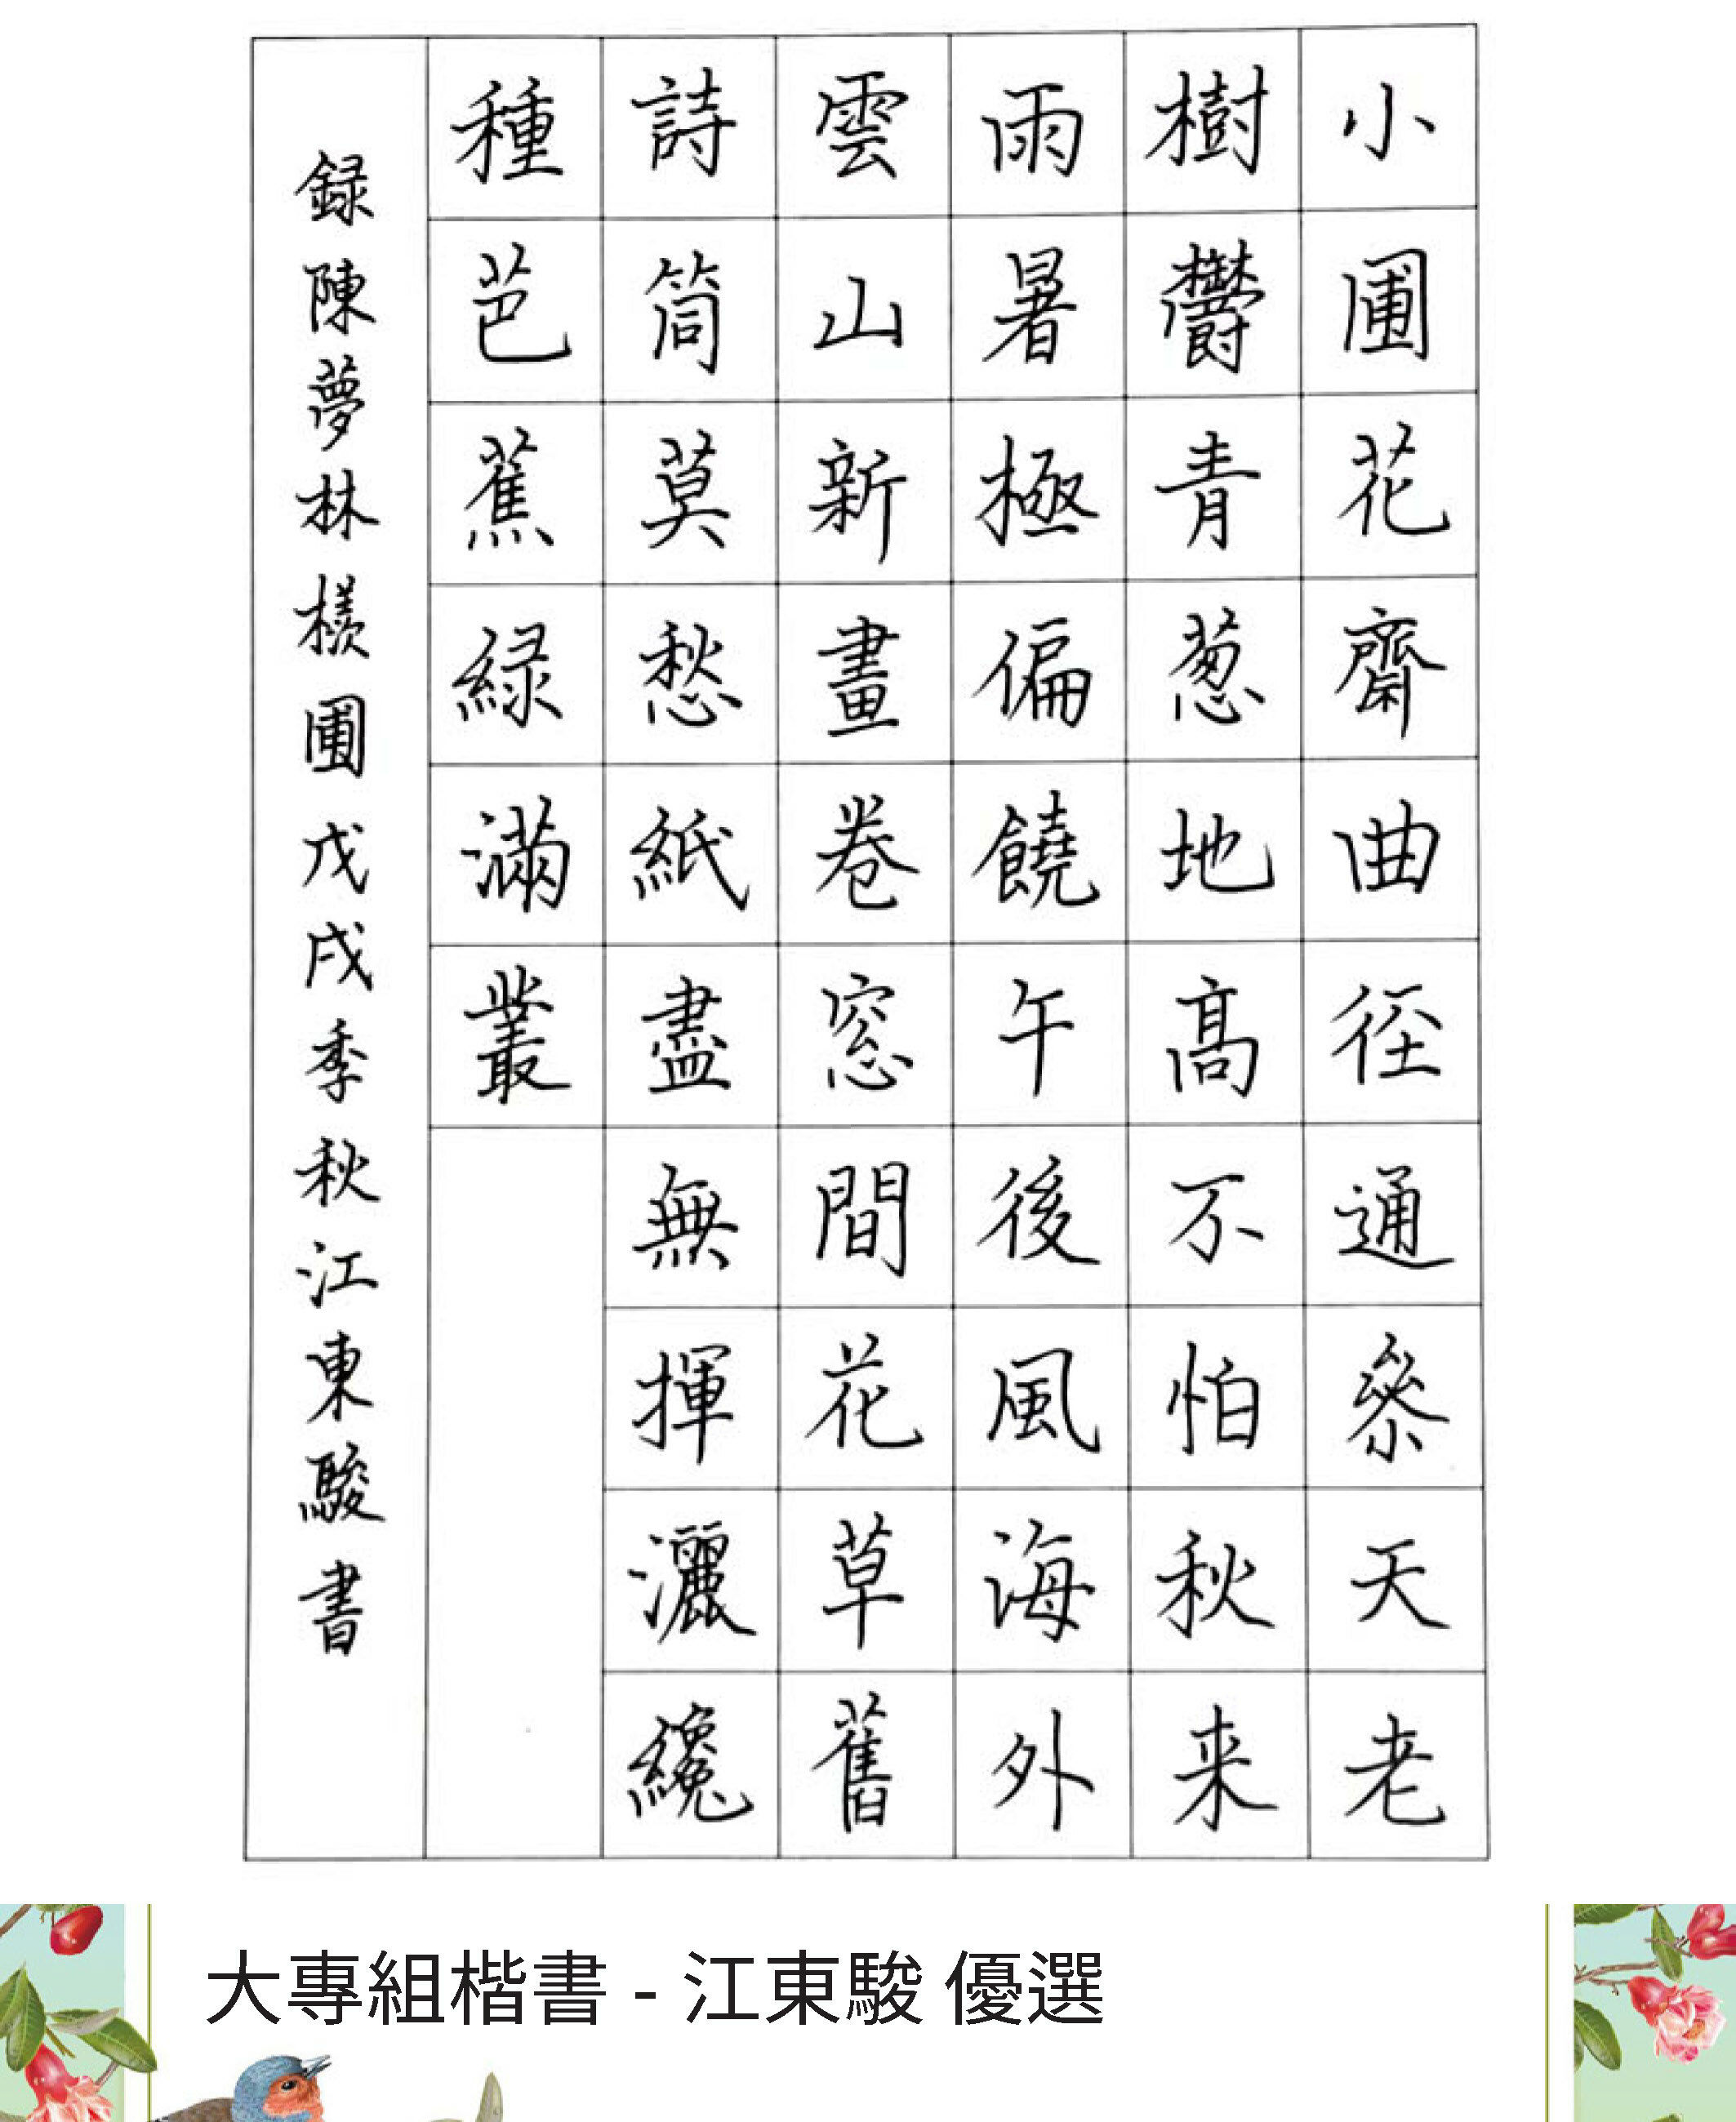 小圃花齋曲徑通參天老
樹鬱青葱地高不怕秋来
雨暑極偏饒午後風海外
雲山新畫卷窓間花草舊
詩筒莫愁紙盡無揮灑纔
種芭蕉緑滿叢
録陳夢林檨圃戊戌季秋江東駿書
大專組楷書 - 江東駿 優選